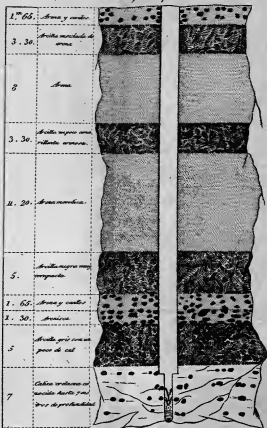 1.m 65. Arena y cantos
3. 30. Arcilla mezclada de
arena
8 Arena
3. 30. Arcilla negra ama
rillenta arenosa.
11. 20. Arena movediza
5. Arcilla negra muy
compacta
1. 65 Arena y cantos
1. 30. Arenisca
5 Arcilla gris con un
poco de cal
7 Caliza cretacea co
nocida hasta 7 me
tros de profundidad